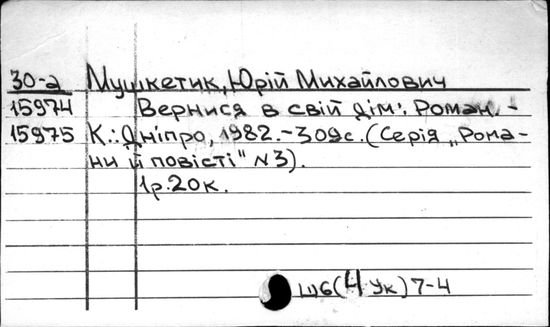 30-а Мушкетик, Юрій Михайлович
15974 Вернися в свій дім: Роман. -
15975 К.: Дніпро, 1982. - 309с. (Серія „Рома-
ни й повісті" №3).
1р.20к.
Ш6(4Ук)7-4